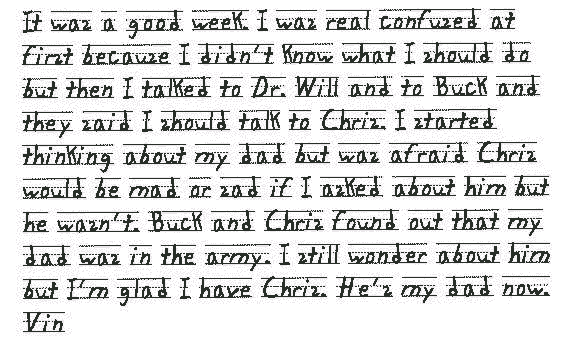 It was a good week. I was real confused at
first because I didn't know what I should do
but then I talked to Dr. Will and to Buck and
they said I should talk to Chris. I started
thinking about my dad but was afraid Chris
would be mad or sad if I asked about him but
he wasn't. Buck and Chris found out that my
dad was in the army. I still wonder about him
but I'm glad I have Chris. He's my dad now.
Vin